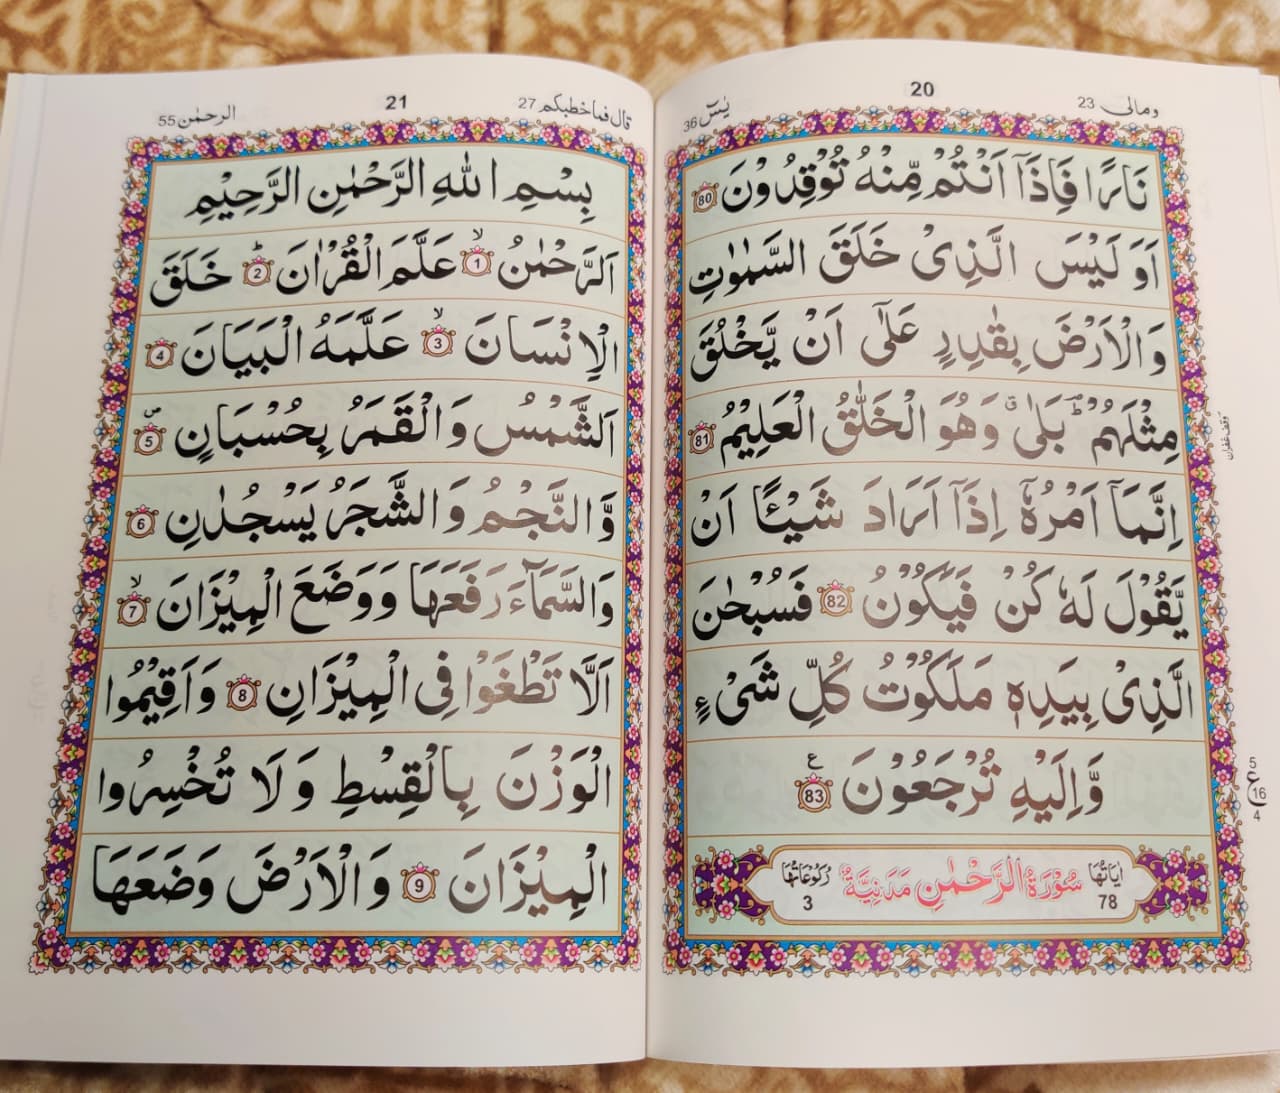 ومالی 23
20
یٰسٓ 36
نَارًا فَاِذَاۤ اَنْتُمْ مِّنْهُ تُوْقِدُوْنَ 80
اَوَلَیْسَ الَّذِیْ خَلَقَ السَّمٰوٰتِ
وَالْاَرْضَ بِقٰدِرٍ عَلٰۤی اَنْ یَّخْلُقَ
مِثْلَهُمْ ؕ بَلٰی ۗ وَهُوَ الْخَلّٰقُ الْعَلِیْمُ 81
اِنَّمَاۤ اَمْرُهٗۤ اِذَاۤ اَرَادَ شَیْـًٔا اَنْ
یَّقُوْلَ لَهٗ كُنْ فَیَكُوْنُ 82 فَسُبْحٰنَ
الَّذِیْ بِیَدِهٖ مَلَكُوْتُ كُلِّ شَیْءٍ
وَّاِلَیْهِ تُرْجَعُوْنَ 83 ع
5
ع 16
4
اٰیَاتُهَا 78 سُوْرَةُ الرَّحْمٰنِ مَدَنِیَّةٌ رُكُوْعَاتُهَا 3
قال فما خطبکم 27
21
الرحمٰن 55
بِسْمِ اللّٰهِ الرَّحْمٰنِ الرَّحِیْمِ
اَلرَّحْمٰنُ ۙ 1 عَلَّمَ الْقُرْاٰنَ ؕ 2 خَلَقَ
الْاِنْسَانَ ۙ 3 عَلَّمَهُ الْبَیَانَ 4
اَلشَّمْسُ وَالْقَمَرُ بِحُسْبَانٍ ۪ 5
وَّالنَّجْمُ وَالشَّجَرُ یَسْجُدٰنِ 6
وَالسَّمَآءَ رَفَعَهَا وَوَضَعَ الْمِیْزَانَ ۙ 7
اَلَّا تَطْغَوْا فِی الْمِیْزَانِ 8 وَاَقِیْمُوا
الْوَزْنَ بِالْقِسْطِ وَلَا تُخْسِرُوا
الْمِیْزَانَ 9 وَالْاَرْضَ وَضَعَهَا